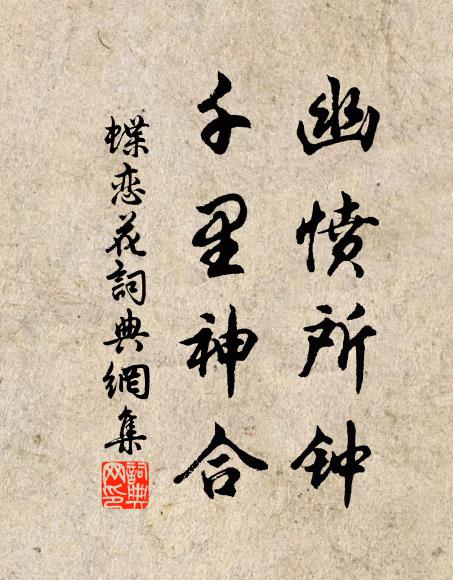 幽愤所钟
千里神合
蝶恋花詞典網集
詞典
网印